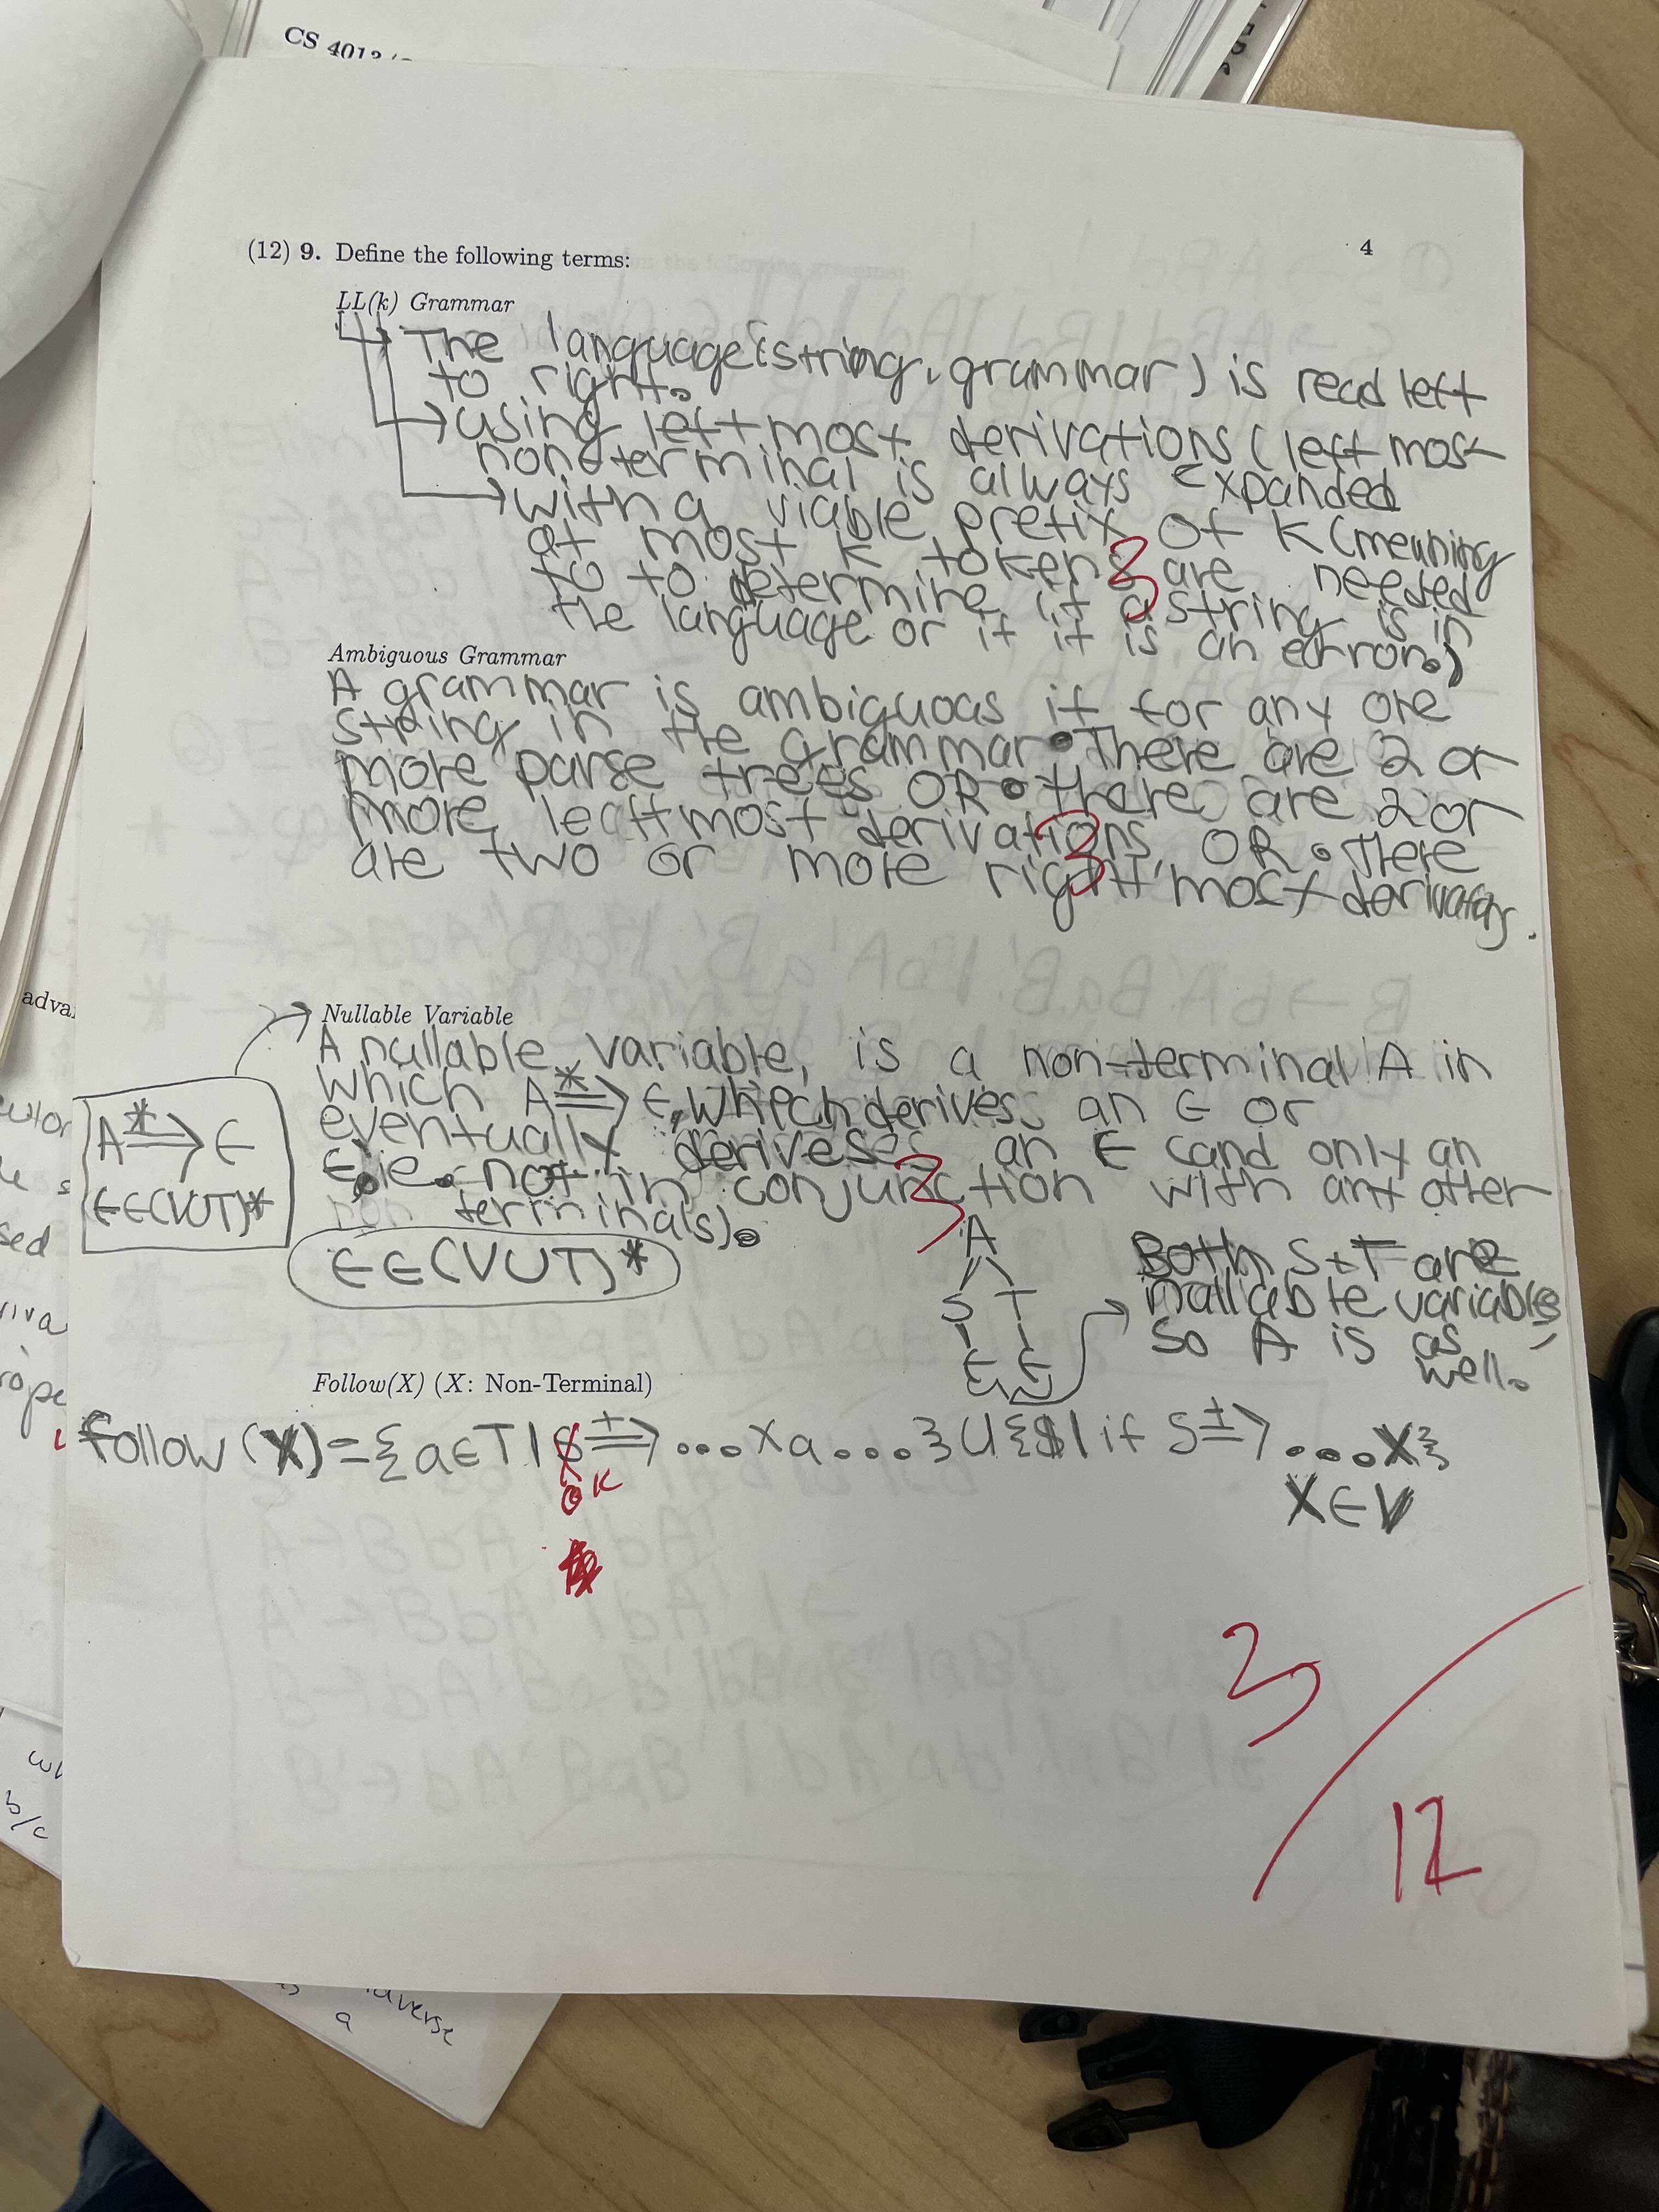 CS 4013
4
(12) 9. Define the following terms:
LL(k) Grammar
The language (string, grammar) is read left
to right.
using left most derivations (left most
non-terminal is always expanded
with a viable prefix of K (meaning
at most k tokens are needed
to to determine if a string is in
the language or if it is an error.)
3
Ambiguous Grammar
A grammar is ambiguous if for any one
string in the grammar • There are 2 or
more parse trees OR • there are 2 or
more leftmost derivations OR • There
are two or more right most derivations.
3
Nullable Variable
A nullable variable, is a non-terminal A in
which A *⇒ ϵ, which derives an ϵ or
eventually deriveses an ϵ (and only an
ϵ, ie. not in conjunction with any other
non terminals).
3
A *⇒ ϵ
ϵ ∈ (VUT)*
ϵ ∈ (VUT)*
A
S T
ϵ ϵ
Both S + T are
nullable variables,
so A is as
well.
Follow(X) (X: Non-Terminal)
follow (X) = {a ∈ T | S +⇒ ... X a ...} U {$ | if S +⇒ ... X}
X ∈ V
OK
3/12
adva
sed
riva
rope
wh
b/c
averse
a